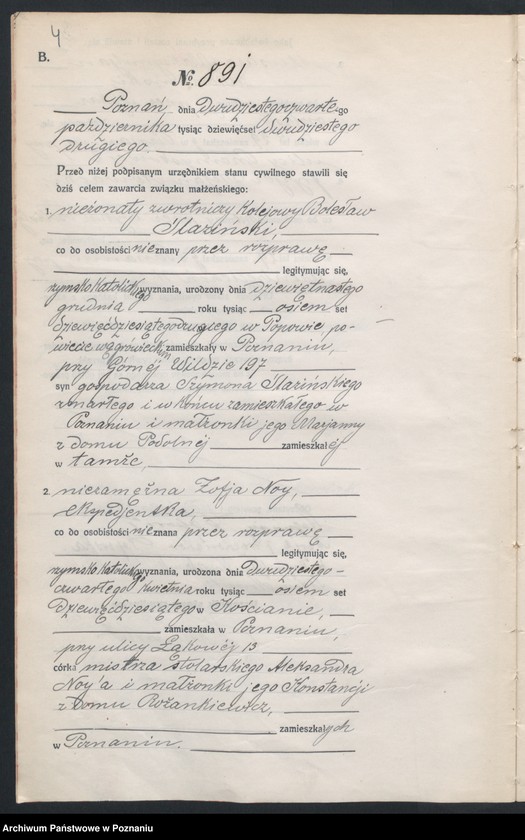 4
B.
No. 891
Poznań dnia dwudziestegoczwartego
października tysiąc dziewięćset dwudziestego
drugiego.
Przed niżej podpisanym urzędnikiem stanu cywilnego stawili się
dziś celem zawarcia związku małżeńskiego:
1. nieżonaty zwrotniczy kolejowy Bolesław
Ślaziński,
co do osobistości nieznany przez rozprawę
legitymując się,
rzymsko katolickiego wyznania, urodzony dnia dziewiętnastego
grudnia roku tysiąc osiem set
dziewięćdziesiątegodrugiego w Popowie, po-
wiecie wągrowieckim zamieszkały w Poznaniu,
przy Górnej Wildzie 197
syn gospodarza Szymona Ślazińskiego
zmarłego i w końcu zamieszkałego w
Poznaniu i małżonki jego Marjanny
z domu Podolnéj zamieszkałej
w tamże,
2. niezamężna Zofja Noy,
ekspedjentka,
co do osobistości nieznana przez rozprawę
legitymując się,
rzymsko katolickiego wyznania, urodzona dnia dwudziestego-
czwartego kwietnia roku tysiąc osiem set
dziewięćdziesiątego w Kościanie,
zamieszkała w Poznaniu,
przy ulicy Łąkowéj 13
córka mistrza stolarskiego Aleksandra
Noy'a i małżonki jego Konstancji
z domu Rożankiewicz,
zamieszkałych
w Poznaniu.
Archiwum Państwowe w Poznaniu